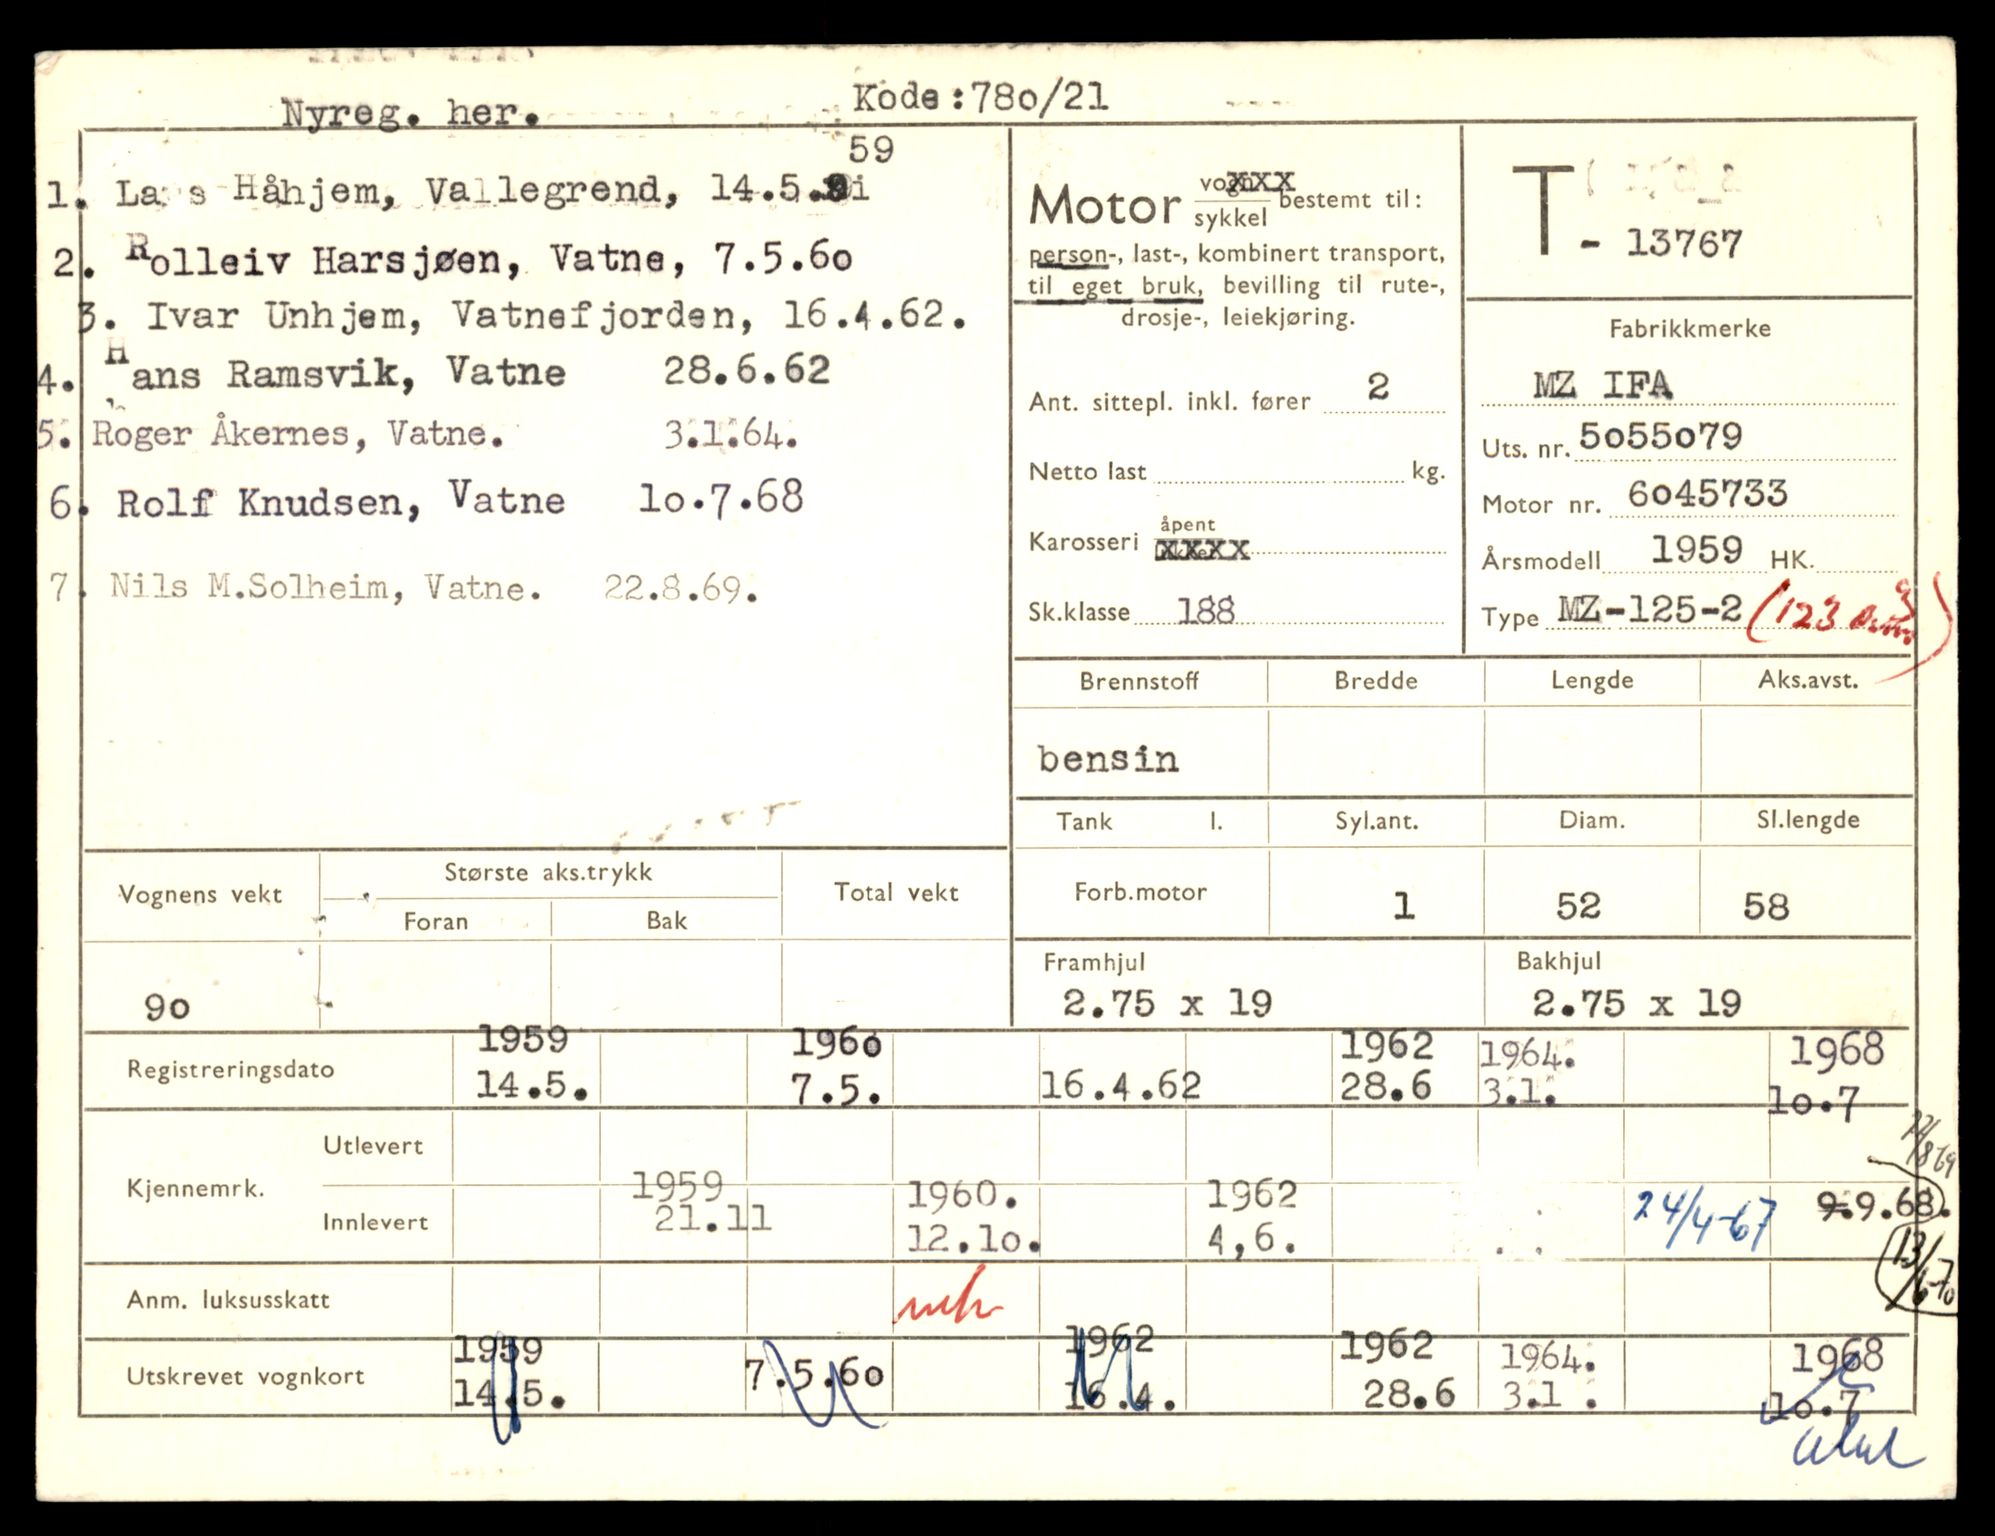 Nyreg. her.
Kode:78o/21
59
1. Lars Håhjem, Vallegrend, 14.5.
2. Rolleiv Harsjøen, Vatne, 7.5.6o
3. Ivar Unhjem, Vatnefjorden, 16.4.62.
4. Hans Ramsvik, Vatne 28.6.62
5. Roger Åkernes, Vatne. 3.1.64.
6. Rolf Knudsen, Vatne 1o.7.68
7. Nils M.Solheim, Vatne. 22.8.69.
Motor vogn xxx sykkel bestemt til:
person-, last-, kombinert transport,
til eget bruk, bevilling til rute-,
drosje-, leiekjøring.
Ant. sittepl. inkl. fører 2
Netto last kg.
Karosseri åpent xxxx
Sk.klasse 188
T - 13767
Fabrikkmerke
MZ IFA
Uts. nr. 5o55o79
Motor nr. 6o45733
Årsmodell 1959 HK.
Type MZ-125-2 (123
Brennstoff Bredde Lengde Aks.avst.
bensin
Tank l. Syl.ant. Diam. Sl.lengde
Forb.motor 1 52 58
Framhjul Bakhjul
2.75 x 19 2.75 x 19
Vognens vekt Største aks.trykk Total vekt
Foran Bak
9o
Registreringsdato 1959 196o 1962 1964. 1968
14.5. 7.5. 16.4.62 28.6 3.1. 1o.7
Kjennemrk.
Utlevert 22/8 69
Innlevert 1959 1960. 1962 24/4-67 9.9.68.
21.11 12.1o. 4,6. 13/6-70
Anm. luksusskatt
Utskrevet vognkort 1959 7.5.6o 1962 1962 1964. 1968
14.5. 16.4. 28.6 3.1 . 1o.7